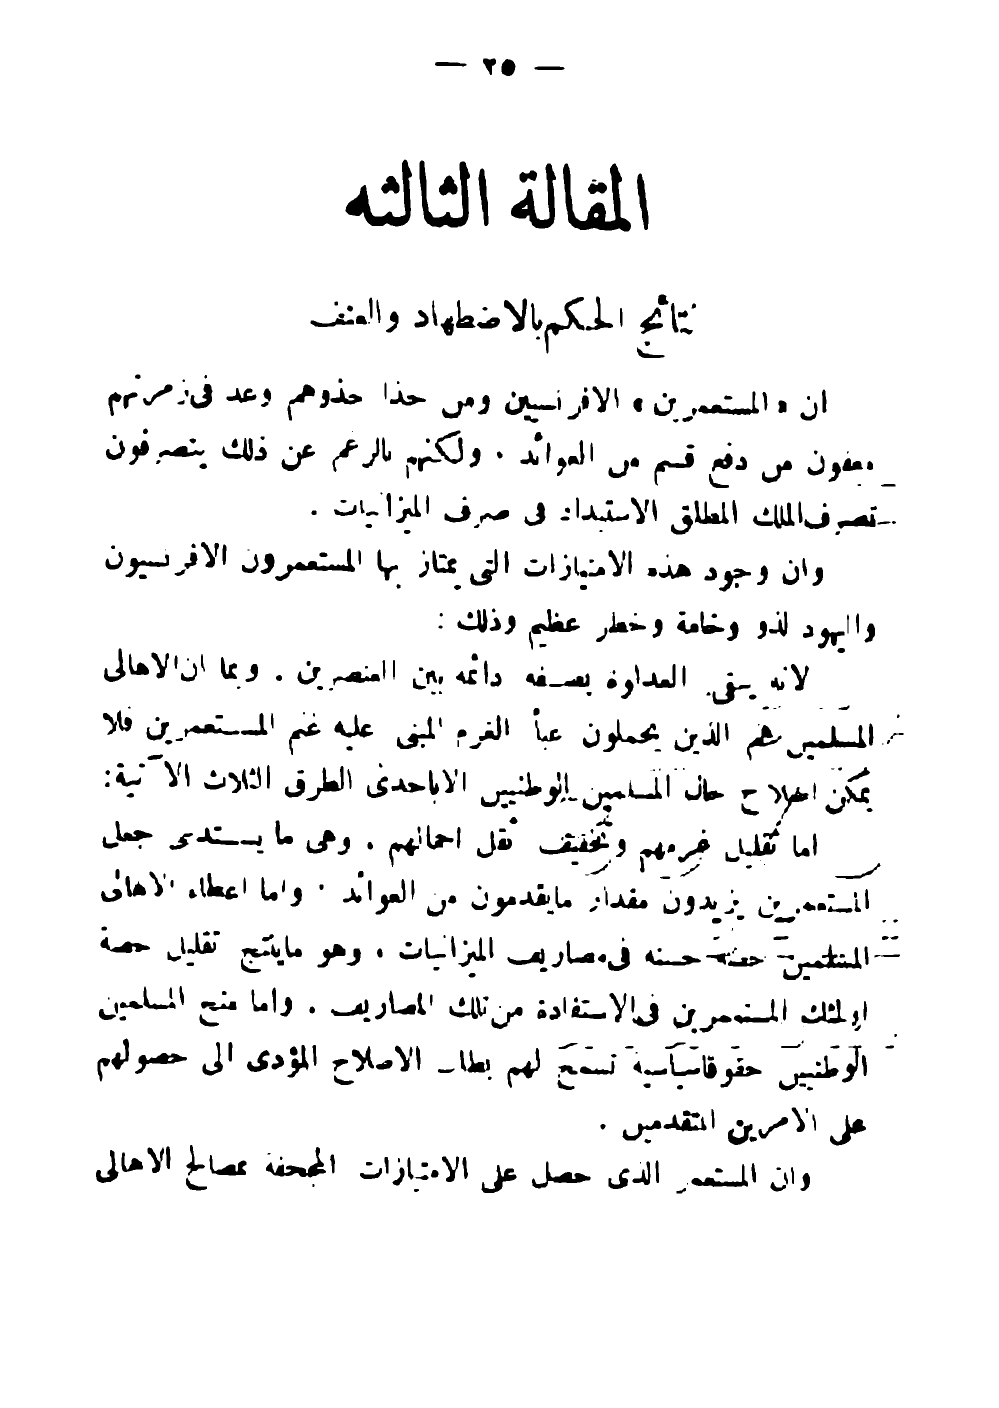 — ٢٥ —
المقالة الثالثه
نتائج الحكم بالاضطهاد والعنف
ان « المستعمرين » الافرنسيين ومن حذا حذوهم وعد فى زمرتهم
معفون من دفع قسم من العوائد . ولكنهم بالرغم عن ذلك يتصرفون
تصرف الملك المطلق الاستبداد فى صرف الميزانيات .
وان وجود هذه الامتيازات التى يمتاز بها المستعمرون الافرنسيون
واليهود لذو وخامة وخطر عظيم وذلك :
لانه يبقى العداوة بصفه دائمه بين العنصرين . وبما ان الاهالى
المسلمين هم الذين يحملون عبأ الغرم المبنى عليه غنم المستعمرين فلا
يمكن اصلاح حال المسلمين الوطنيين الا باحدى الطرق الثلاث الآتية :
اما تقليل غرمهم وتخفيف ثقل احمالهم . وهى ما يستدعى جعل
المستعمرين يزيدون مقدار ما يقدمون من العوائد . واما اعطاء الاهالى
المسلمين حصة حسنه فى مصاريف الميزانيات . وهو ما ينتج تقليل حصة
اولئك المستعمرين فى الاستفادة من تلك المصاريف . واما منح المسلمين
الوطنيين حقوقا سياسية تسمح لهم بطلب الاصلاح المؤدى الى حصولهم
على الامرين المتقدمين .
وان المستعمر الذى حصل على الامتيازات المجحفة بمصالح الاهالى